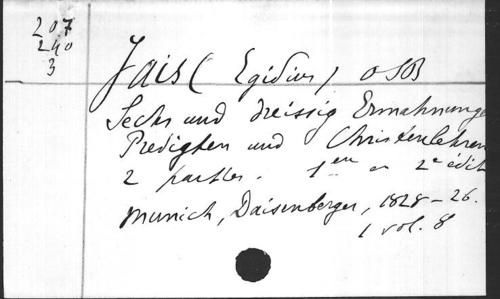 207
240
3
Jais (Egidius) OSB
Sechs und dreissig Ermahnunge
Predigten und Christenlehren
2 parties. 1en en 2e édit
Munich, Daisenberger, 1828-26.
1 vol. 8